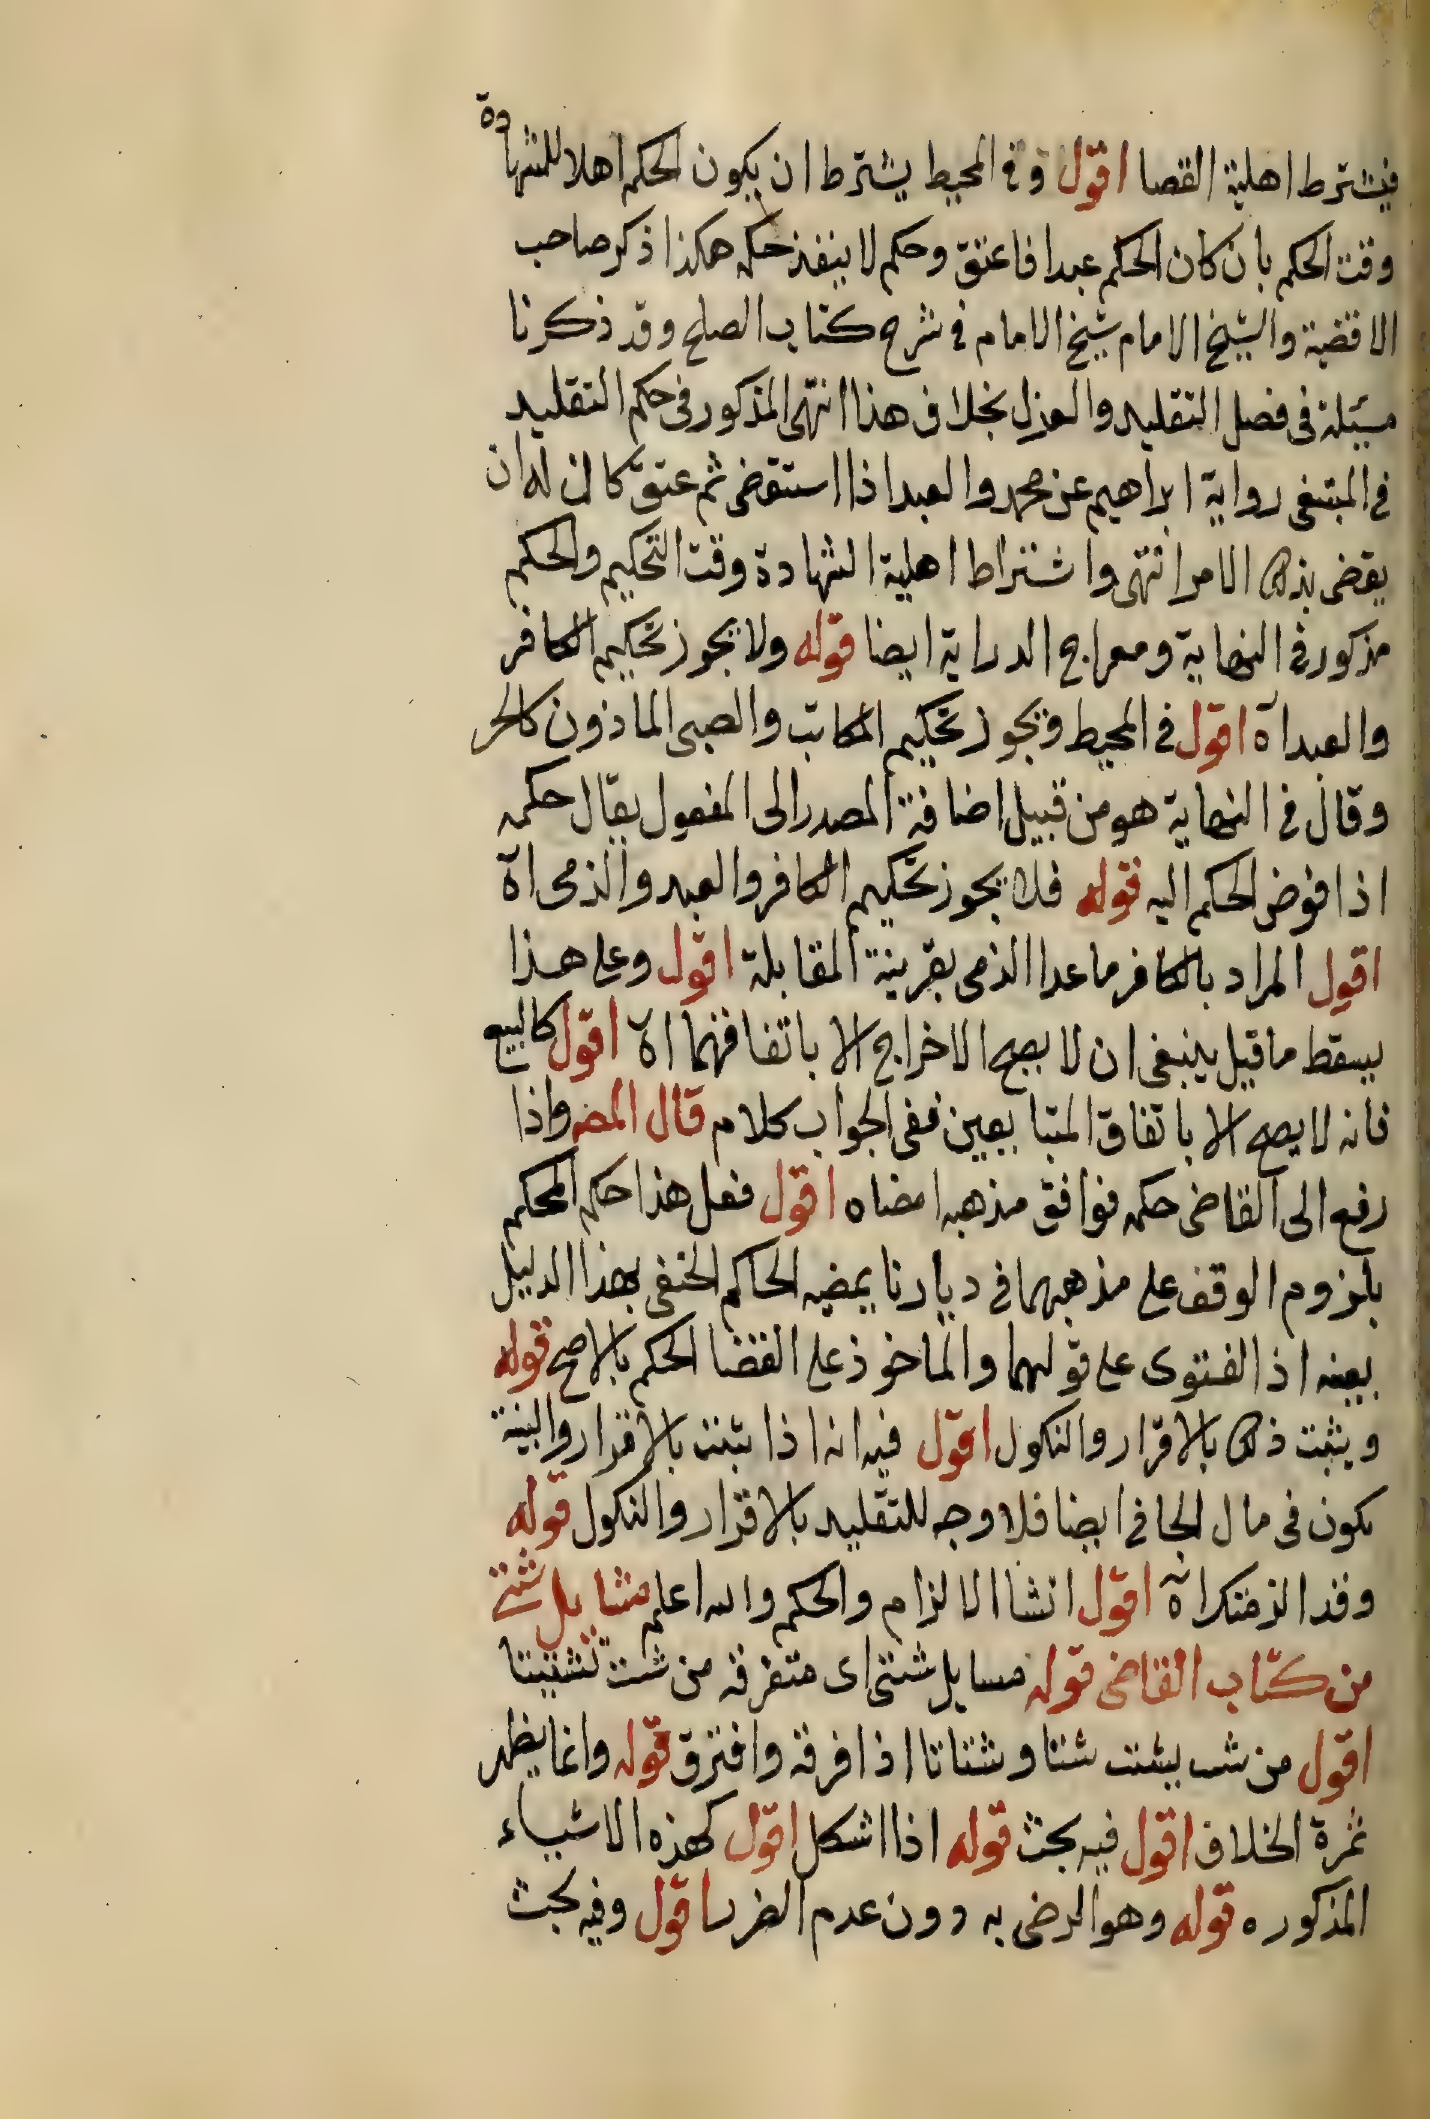 فيشترط اهلية القضا اقول وفى المحيط يشترط ان يكون الحكم اهلا للشهادة
وقت الحكم بان كان الحكم عبدا فاعتق وحكم لا ينفذ حكمه هكذا ذكر صاحب
الاقضية والشيخ الامام شيخ الامام فى شرح كتاب الصلح وقد ذكرنا
مسئلة فى فصل التقليد والعزل بخلاف هذا انتهى المذكور فى حكم التقليد
فى المبتغى رواية ابراهيم عن محمد والعبد اذا استقضى ثم عتق كان له ان
يقضى بذلك الامر انتهى واشتراط اهلية الشهادة وقت التحكيم والحكم
مذكور فى النهاية ومعراج الدراية ايضا قوله ولا يجوز تحكيم الكافر
والعبد اه اقول فى المحيط ويجوز تحكيم المكاتب والصبى الماذون كالحر
وقال فى النهاية هو من قبيل اضافة المصدر الى المفعول يقال حكمه
اذا فوض الحكم اليه قوله فلا يجوز تحكيم الكافر والعبد والذمى اه
اقول المراد بالكافر ما عدا الذمى بقرينة المقابلة اقول وعلى هذا
يسقط ما قيل ينبغى ان لا يصح الاخراج الا باتفاقهما اه اقول كالبيع
فانه لا يصح الا باتفاق المتبايعين ففى الجواب كلام قال المص واذا
رفع الى القاضى حكمه فوافق مذهبه امضاه اقول فعل هذا حكم المحكم
بلزوم الوقف على مذهبهما فى ديارنا يمضيه الحاكم الحنفى بهذا الدليل
بعينه اذ الفتوى على قولهما والماخوذ على القضا الحكم بالاصح قوله
ويثبت ذلك بالاقرار والنكول اقول فيه انه اذا ثبت بالاقرار والبينة
يكون فى مال الجانى ايضا فلا وجه للتقليد بالاقرار والنكول قوله
وقد الزمتك اه اقول انشا الالزام والحكم والله اعلم مسايل شتى
من كتاب القاضى قوله مسايل شتى اى متفرقة من شت تشتيتا
اقول من شت يشت شتا وشتاتا اذا فرقه وافترق قوله وانما يظهر
ثمرة الخلاف اقول فيه بحث قوله اذا اشكل اقول كهذه الاشياء
المذكوره قوله وهو الرضى به دون عدم الضرر اقول وفيه بحث